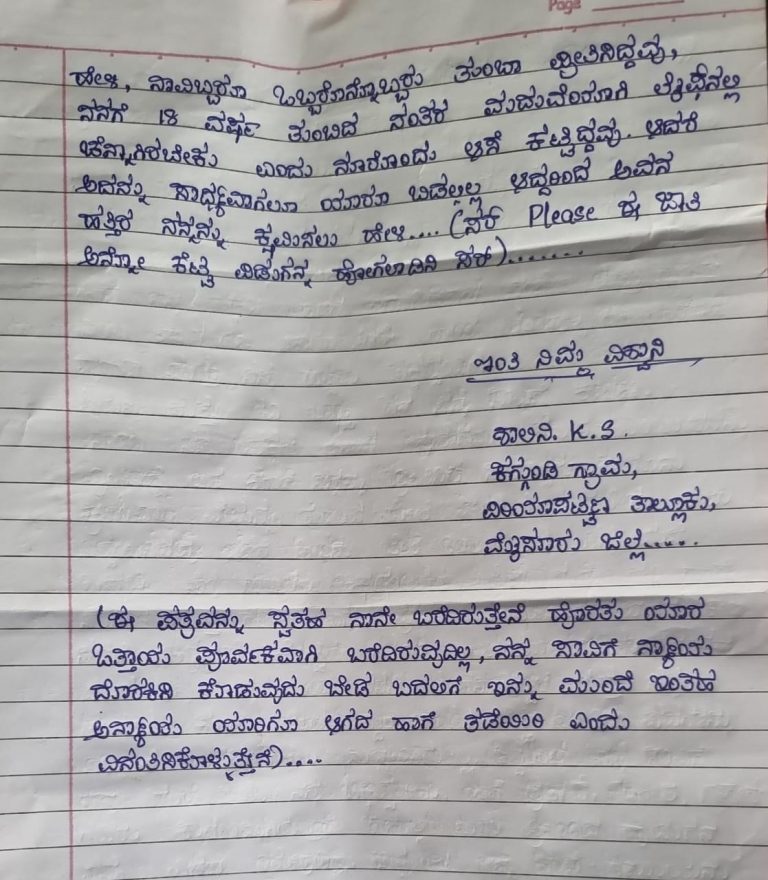 Page
ಹೇಳಿ, ನಾವಿಬ್ಬರೂ ಒಬ್ಬರನೊಬ್ಬರು ತುಂಬಾ ಪ್ರೀತಿಸಿದ್ದೆವು,
ನನಗೆ 18 ವರ್ಷ ತುಂಬಿದ ನಂತರ ಮದುವೆಯಾಗಿ ಲೈಫ್‌ನಲ್ಲಿ
ಚೆನ್ನಾಗಿರಬೇಕು ಎಂದು ನೂರೊಂದು ಆಸೆ ಕಟ್ಟಿದ್ದೆವು. ಆದರೆ
ಅದನ್ನು ಸಾಧ್ಯವಾಗಲೂ ಯಾರೂ ಬಿಡಲಿಲ್ಲ ಆದ್ದರಿಂದ ಅವನ
ಹತ್ತಿರ ನನ್ನನ್ನು ಕ್ಷಮಿಸಲು ಹೇಳಿ.... (ಸರ್ Please ಈ ಜಾತಿ
ಅನ್ನೋ ಕೆಟ್ಟ ಪಿಡುಗನ್ನ ಹೋಗಲಾಡಿಸಿ ಸರ್).......
ಇಂತಿ ನಿಮ್ಮ ವಿಶ್ವಾಸಿ
ಶಾಲಿನಿ. K.S.
ಕಗ್ಗುಂಡಿ ಗ್ರಾಮ,
ಪಿರಿಯಾಪಟ್ಟಣ ತಾಲ್ಲೂಕು,
ಮೈಸೂರು ಜಿಲ್ಲೆ.....
(ಈ ಪತ್ರವನ್ನು ಸ್ವತಹ ನಾನೇ ಬರೆದಿರುತ್ತೇನೆ ಹೊರತು ಯಾರ
ಒತ್ತಾಯ ಪೂರ್ವಕವಾಗಿ ಬರೆದಿರುವುದಿಲ್ಲ, ನನ್ನ ಸಾವಿಗೆ ನ್ಯಾಯ
ದೊರಕಿಸಿ ಕೊಡುವುದು ಬೇಡ ಬದಲಿಗೆ ಇನ್ನು ಮುಂದೆ ಇಂತಹ
ಅನ್ಯಾಯ ಯಾರಿಗೂ ಆಗದ ಹಾಗೆ ತಡೆಯಿರಿ ಎಂದು
ವಿನಂತಿಸಿಕೊಳ್ಳುತ್ತೇನೆ)....